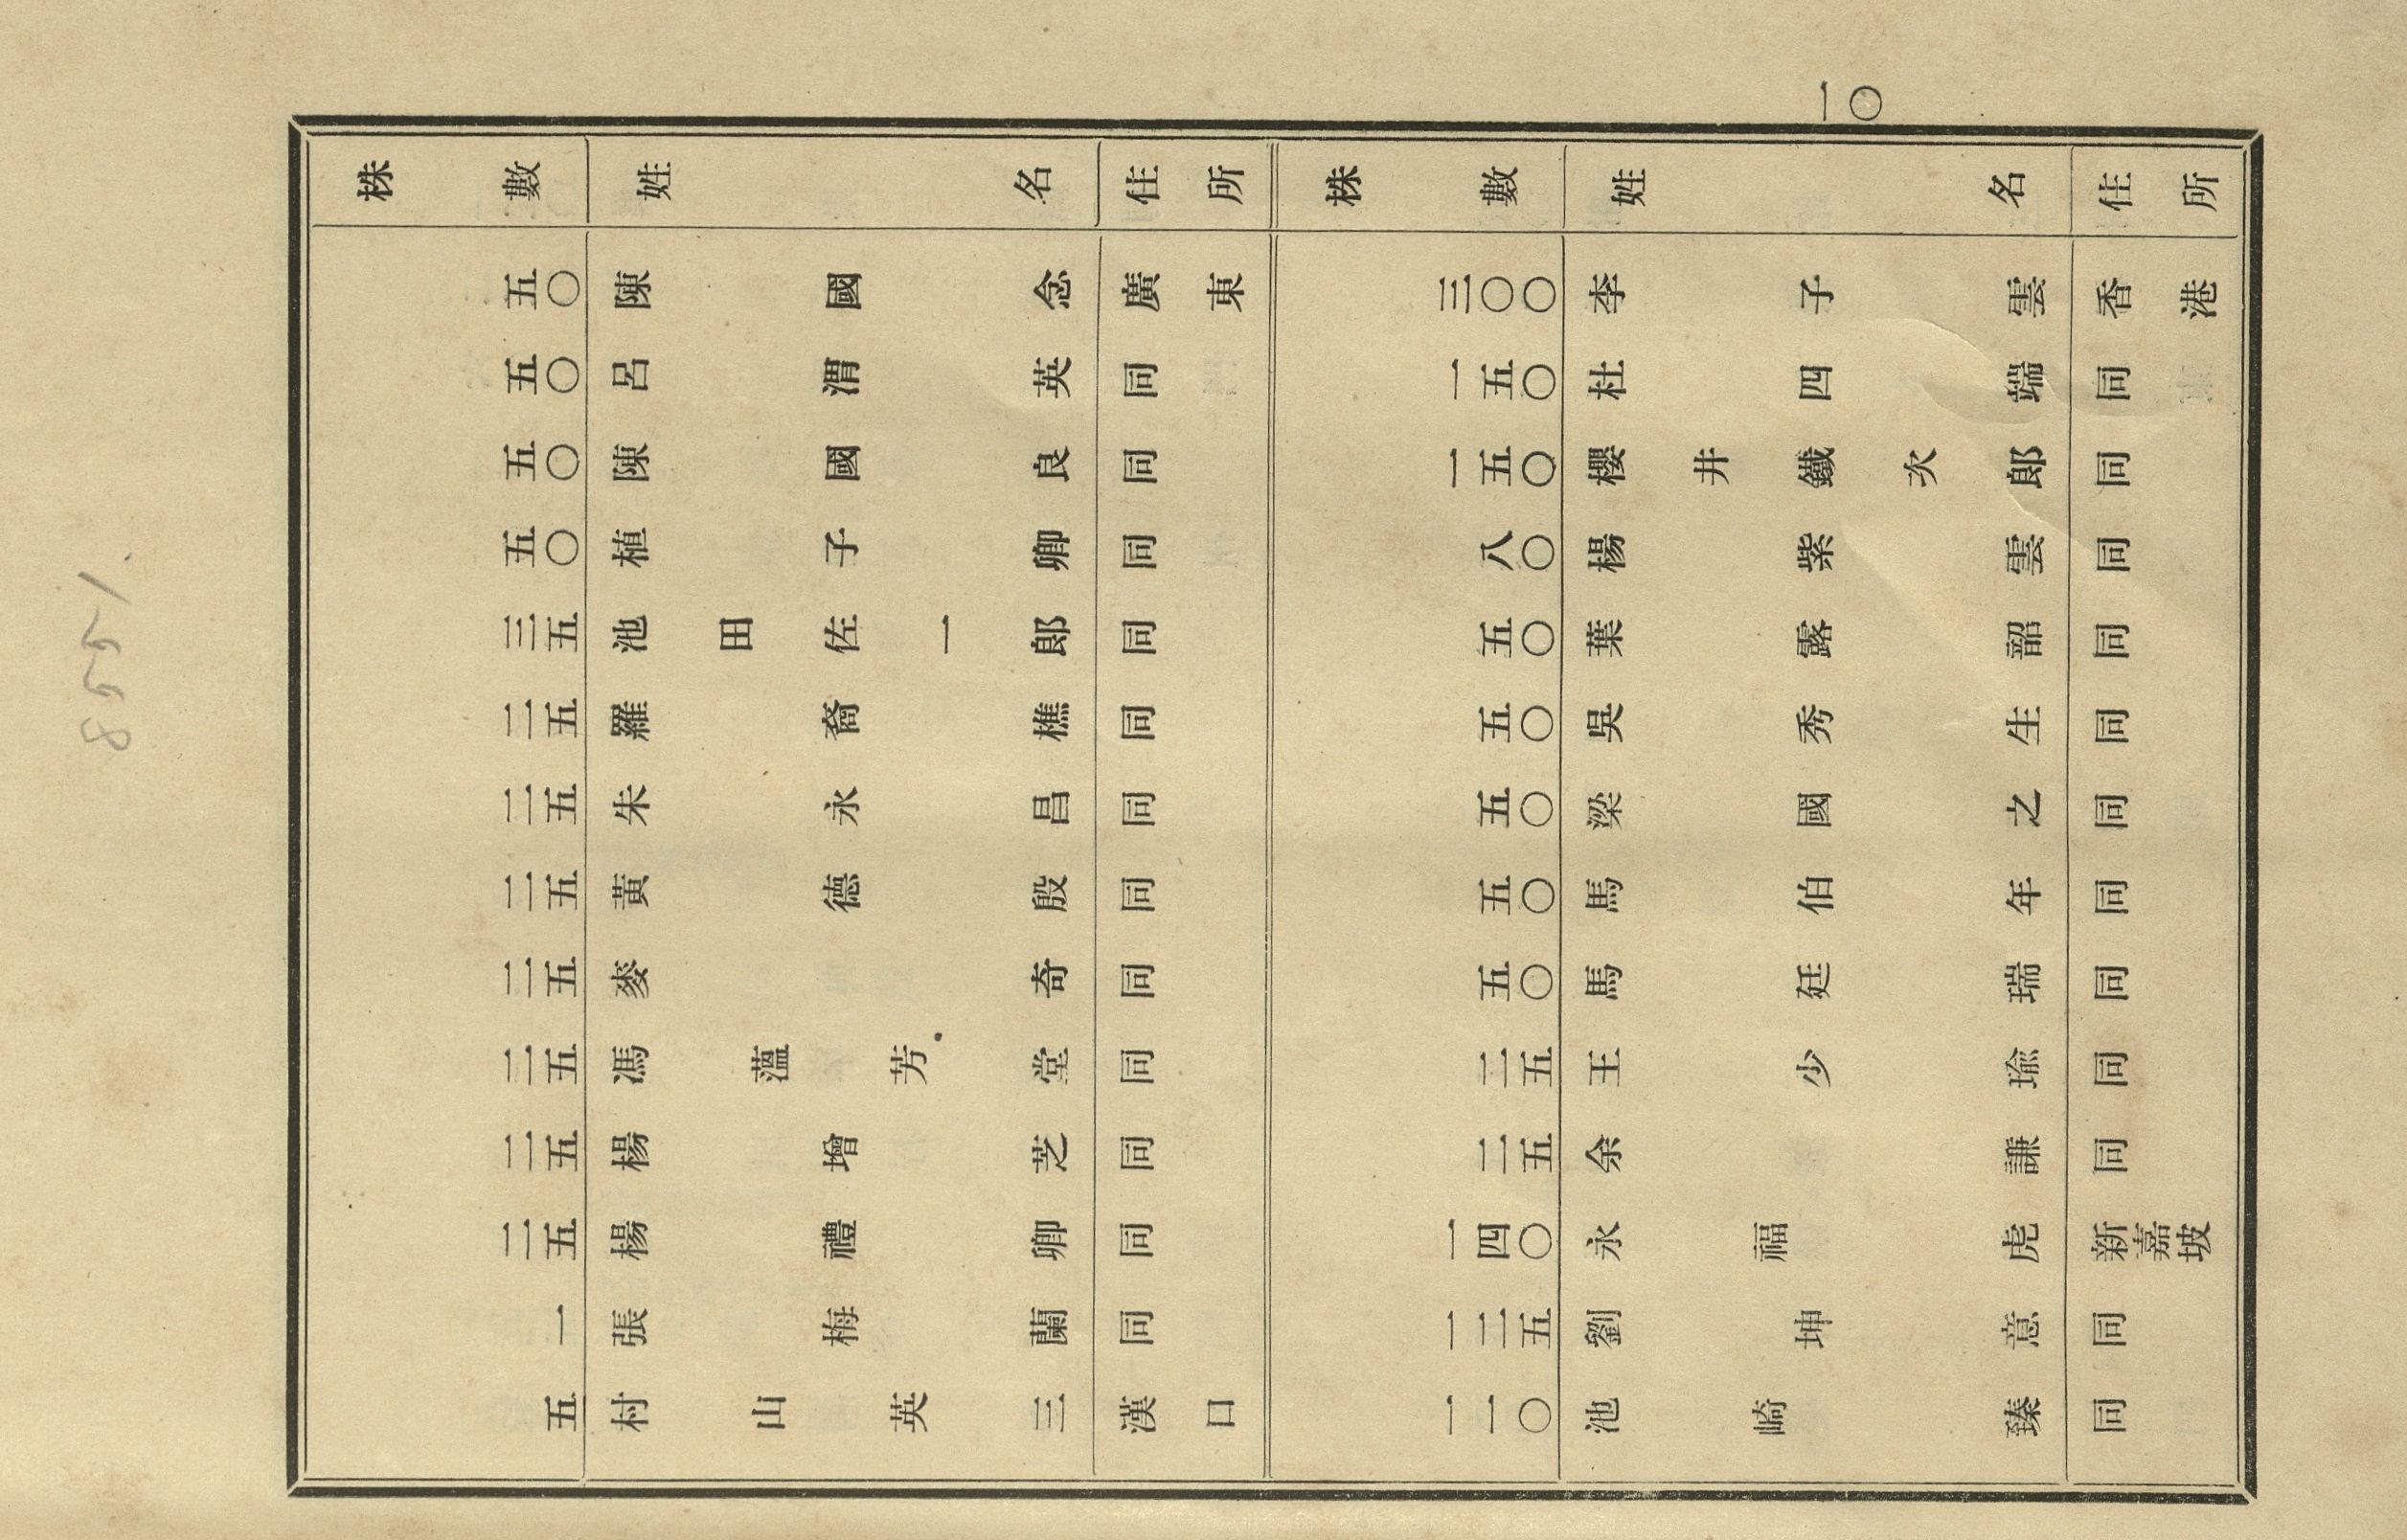 一〇
株數 姓名 住所
五〇 陳國念 廣東
五〇 呂渭英 同
五〇 陳國良 同
五〇 植子卿 同
三五 池田佐一郎 同
二五 羅裔樵 同
二五 朱永昌 同
二五 黃德殷 同
二五 麥奇 同
二五 馮薀芳堂 同
二五 楊增芝 同
二五 楊禮卿 同
一 張梅蘭 同
五 村山英三 漢口
株數 姓名 住所
三〇〇 李子雲 香港
一五〇 杜四端 同
一五〇 櫻井鐵次郎 同
八〇 楊紫雲 同
五〇 葉露韶 同
五〇 吳秀生 同
五〇 梁國之 同
五〇 馬伯年 同
五〇 馬廷瑞 同
二五 王少瑜 同
二五 余謙 同
一四〇 永福虎 新嘉坡
一二五 劉坤意 同
一一〇 池崎臻 同
8551